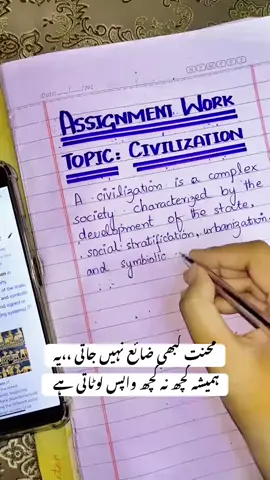 ASSIGNMENT WORK
TOPIC: CIVILIZATION
A civilization is a complex
society characterized by the
development of the state,
social stratification, urbanization
and symbolic
محنت کبھی ضائع نہیں جاتی ،،یہ
ہمیشہ کچھ نہ کچھ واپس لوٹاتی ہے